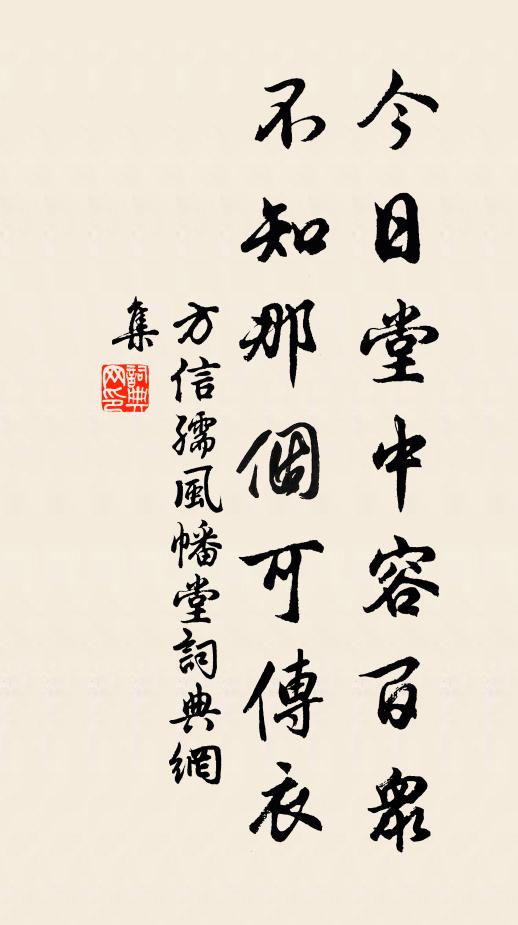 今日堂中容百衆
不知那個可傳衣
方信孺風幡堂詞典網
集
詞典
网印